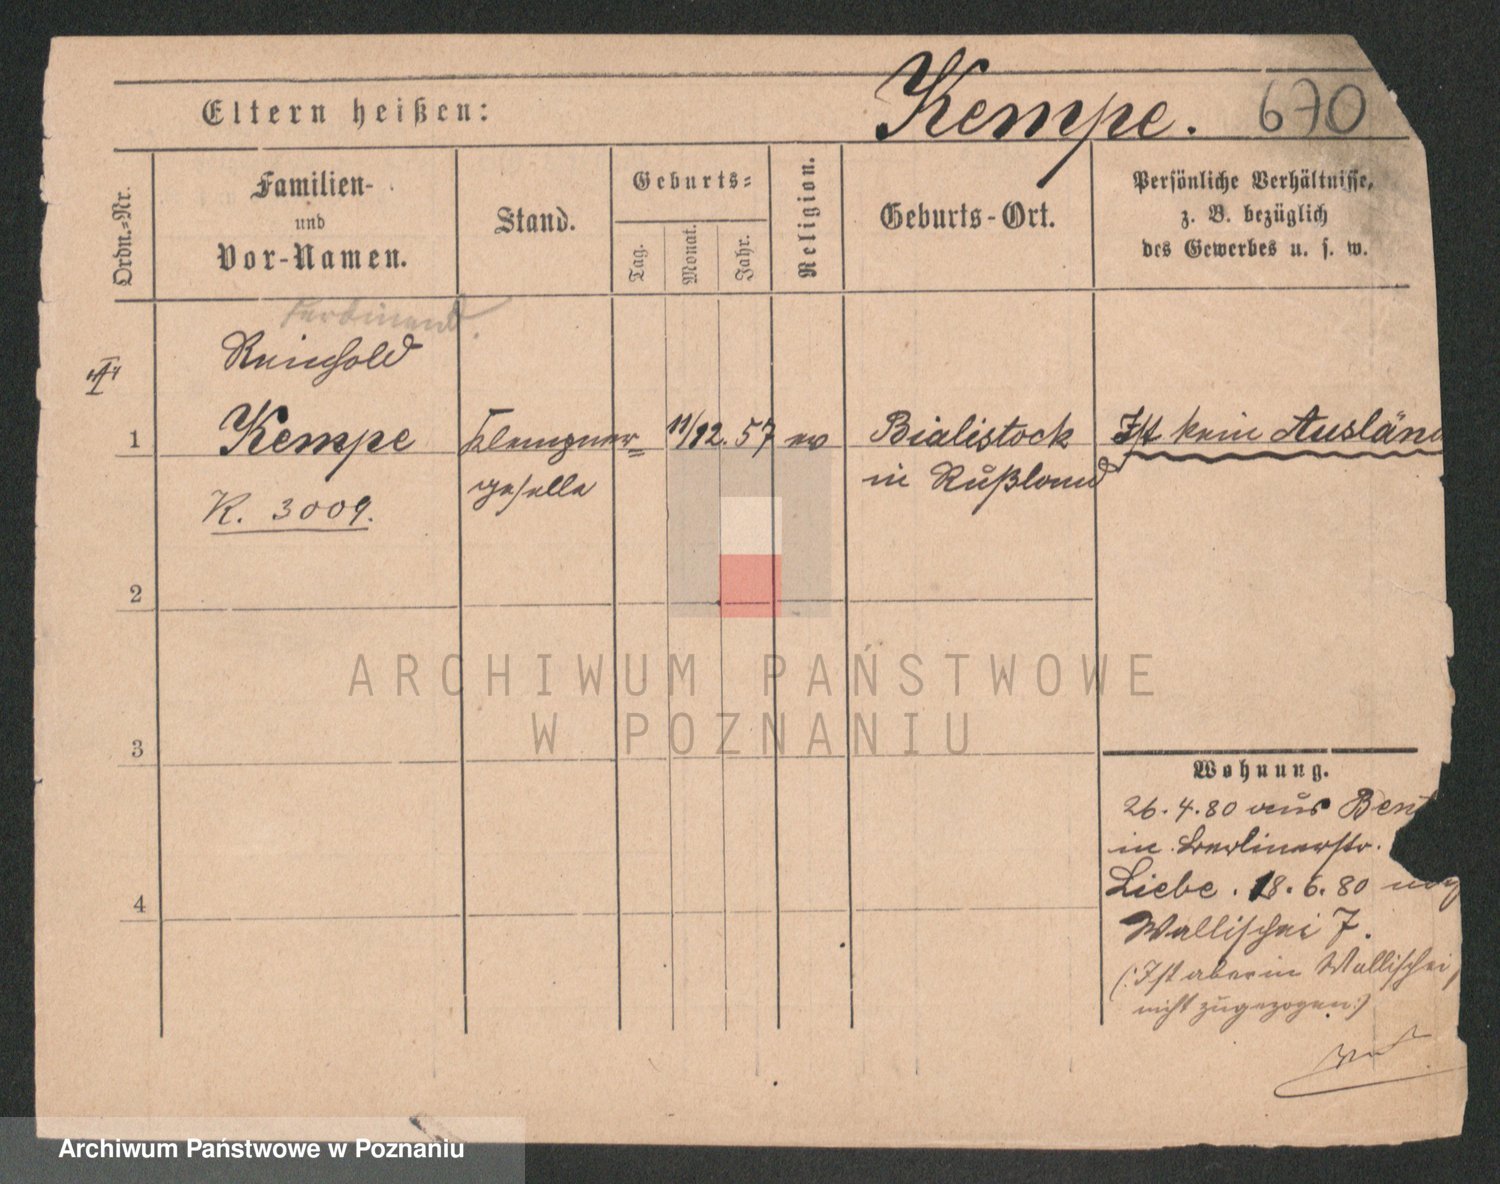 Eltern heißen:
Kempe.
670
Ordn.-Nr.
Familien-
und
Vor-Namen.
Stand.
Geburts-
Tag.
Monat.
Jahr.
Religion.
Geburts-Ort.
Persönliche Verhältnisse,
z. B. bezüglich
des Gewerbes u. s. w.
Ferdinand.
Reinhold
1
Kempe
Klempner=
geselle
11/12. 57
ev
Bialistock
in Rußland
Ist kein Auslän
K. 3009.
2
3
4
Wohnung.
26. 4. 80 aus Bent
in Berlinerstr.
Liebe. 18. 6. 80 nach
Wallischei 7.
(: Ist aber in Wallischei
nicht zugezogen :)
ARCHIWUM PAŃSTWOWE
W POZNANIU
Archiwum Państwowe w Poznaniu